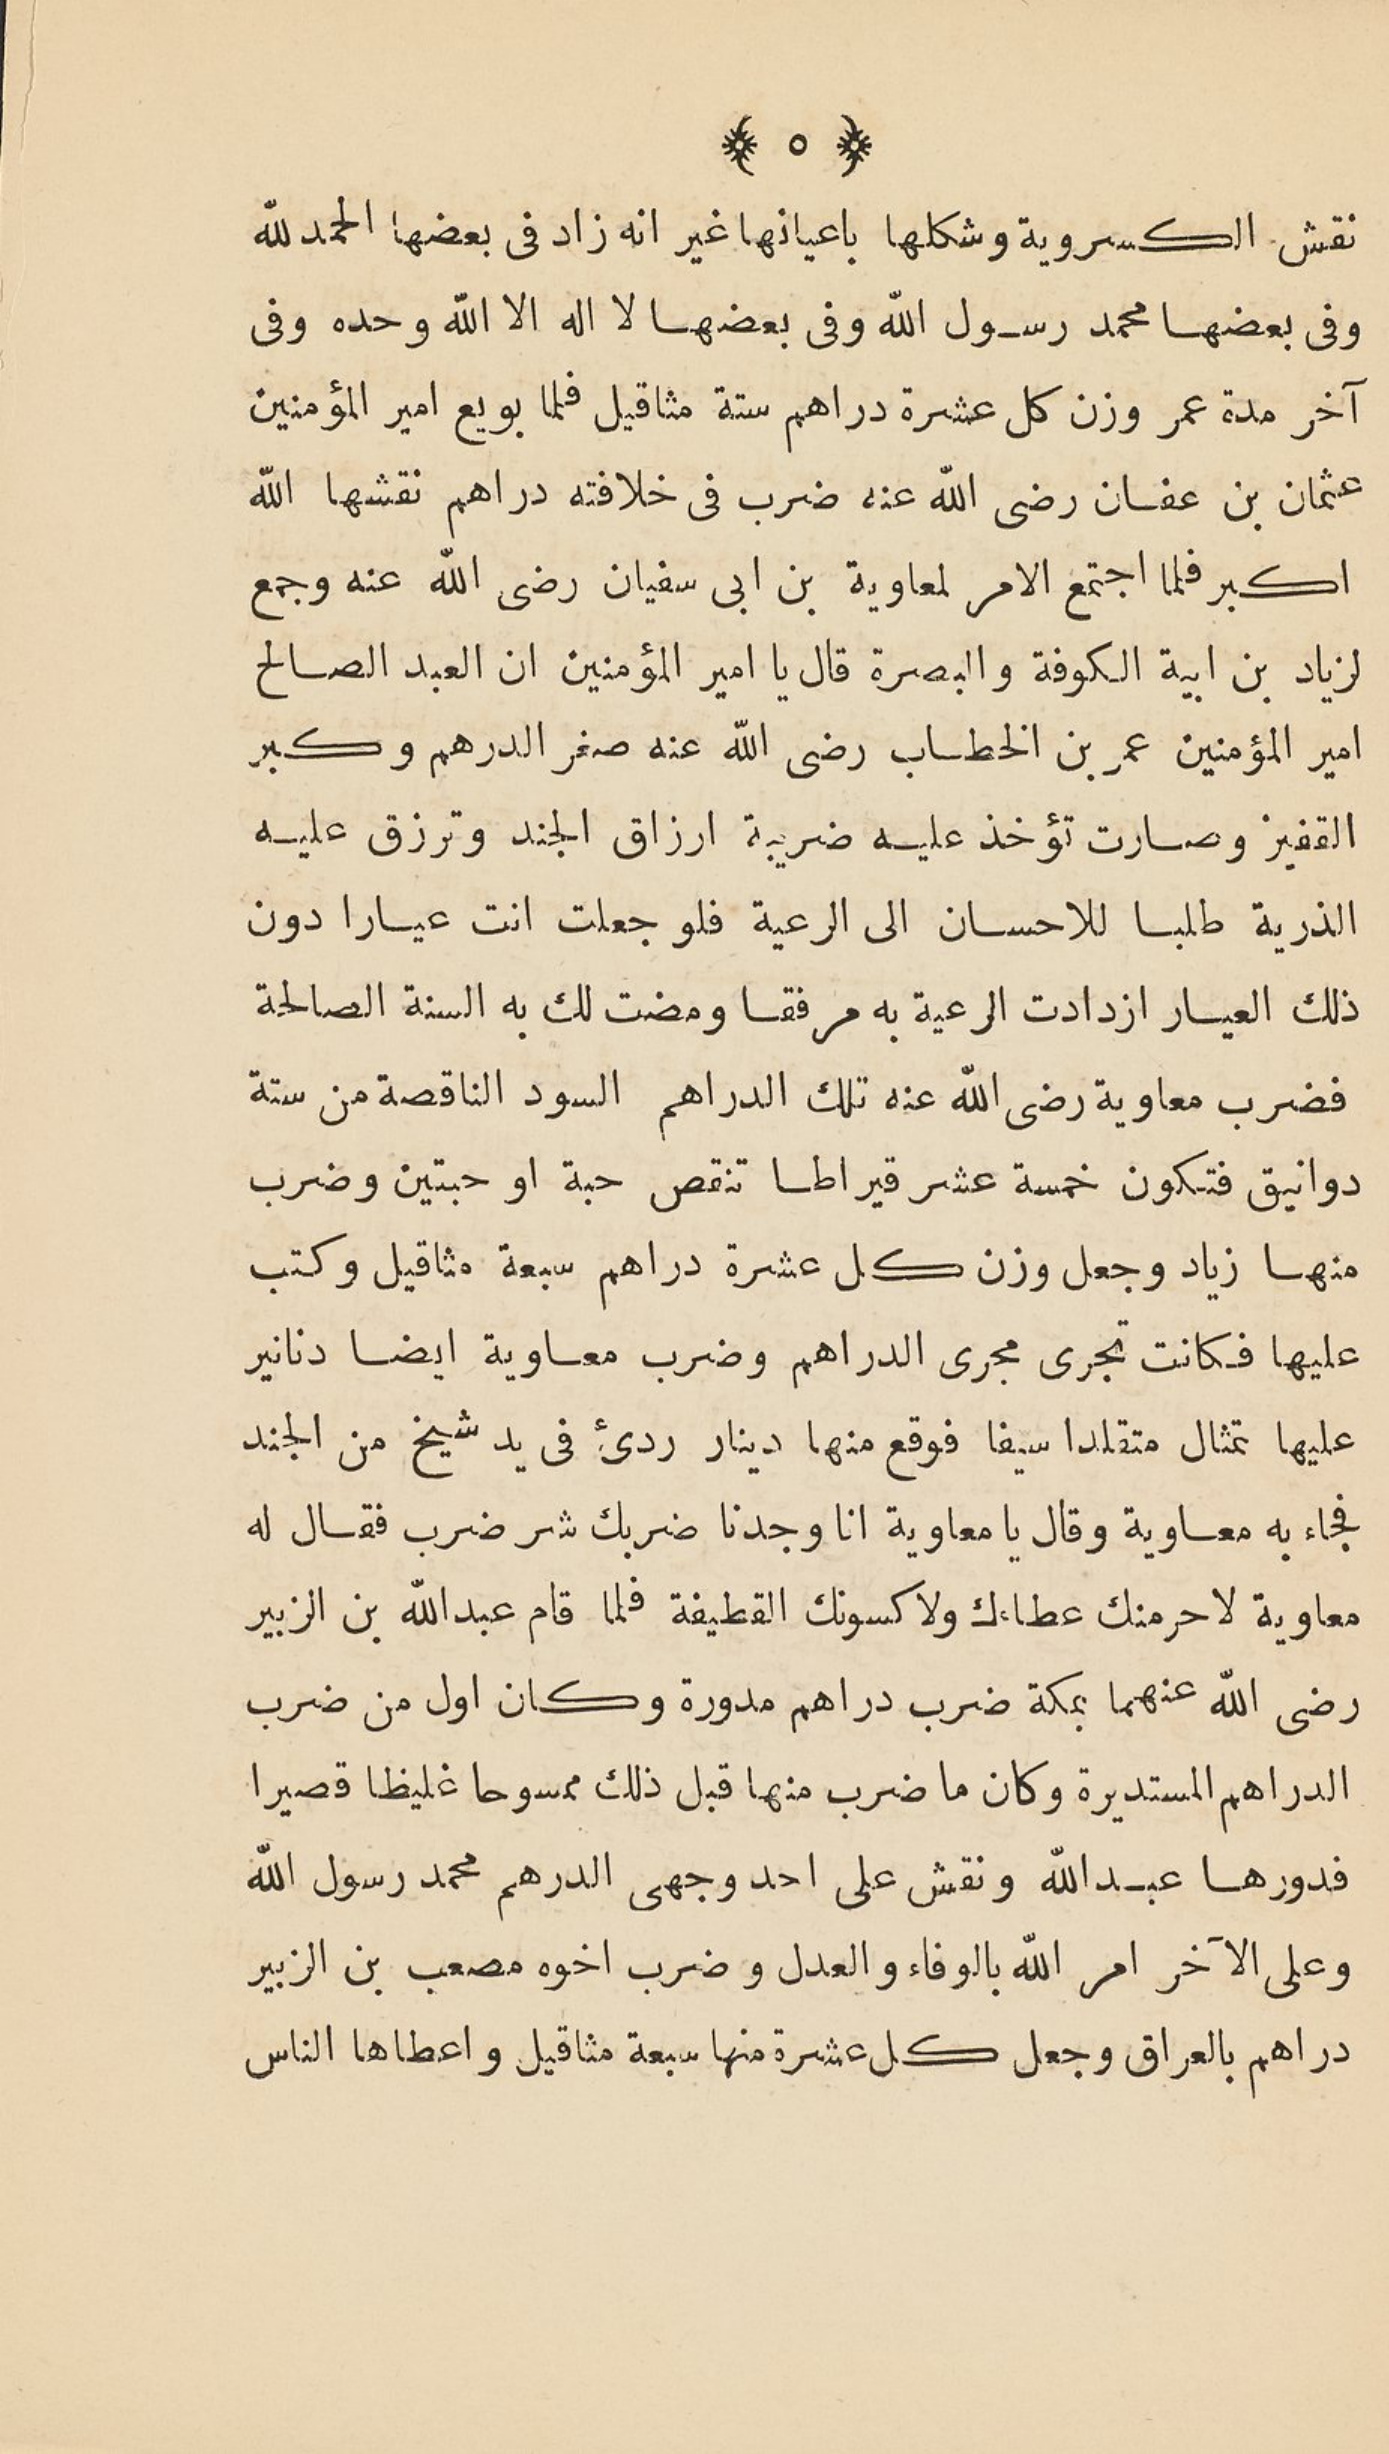 ٥
نقش الكسروية وشكلها باعيانها غير انه زاد فى بعضها الحمد لله
وفى بعضها محمد رسول الله وفى بعضها لا اله الا الله وحده وفى
آخر مدة عمر وزن كل عشرة دراهم ستة مثاقيل فلما بويع امير المؤمنين
عثمان بن عفان رضى الله عنه ضرب فى خلافته دراهم نقشها الله
اكبر فلما اجتمع الامر لمعاوية بن ابى سفيان رضى الله عنه وجمع
لزياد بن ابية الكوفة والبصرة قال يا امير المؤمنين ان العبد الصالح
امير المؤمنين عمر بن الخطاب رضى الله عنه صغر الدرهم وكبر
القفيز وصارت تؤخذ عليه ضريبة ارزاق الجند وترزق عليه
الذرية طلبا للاحسان الى الرعية فلو جعلت انت عيارا دون
ذلك العيار ازدادت الرعية به مرفقا ومضت لك به السنة الصالحة
فضرب معاوية رضى الله عنه تلك الدراهم السود الناقصة من ستة
دوانيق فتكون خمسة عشر قيراطا تنقص حبة او حبتين وضرب
منها زياد وجعل وزن كل عشرة دراهم سبعة مثاقيل وكتب
عليها فكانت تجرى مجرى الدراهم وضرب معاوية ايضا دنانير
عليها تمثال متقلدا سيفا فوقع منها دينار ردئ فى يد شيخ من الجند
فجاء به معاوية وقال يا معاوية انا وجدنا ضربك شر ضرب فقال له
معاوية لاحرمنك عطاءك ولاكسونك القطيفة فلما قام عبدالله بن الزبير
رضى الله عنهما بمكة ضرب دراهم مدورة وكان اول من ضرب
الدراهم المستديرة وكان ما ضرب منها قبل ذلك ممسوحا غليظا قصيرا
فدورها عبدالله ونقش على احد وجهى الدرهم محمد رسول الله
وعلى الآخر امر الله بالوفاء والعدل وضرب اخوه مصعب بن الزبير
دراهم بالعراق وجعل كل عشرة منها سبعة مثاقيل واعطاها الناس